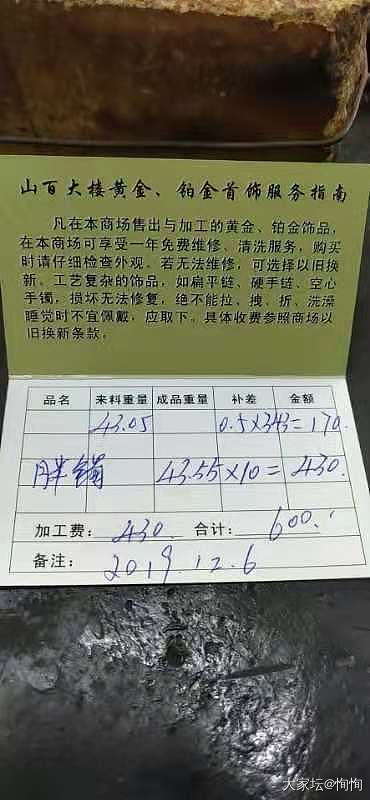 山百大楼黄金、铂金首饰服务指南
凡在本商场售出与加工的黄金、铂金饰品，
在本商场可享受一年免费维修、清洗服务，购买
时请仔细检查外观。若无法维修，可选择以旧换
新。工艺复杂的饰品，如扁平链、硬手链、空心
手镯，损坏无法修复，绝不能拉、拽、折、洗澡
睡觉时不宜佩戴，应取下。具体收费参照商场以
旧换新条款。
品名 来料重量 成品重量 补差 金额
43.05 0.5×343=170.
胖镯 43.55×10=430.
加工费： 430. 合计： 600.
备注： 2019.12.6
大家坛@恂恂